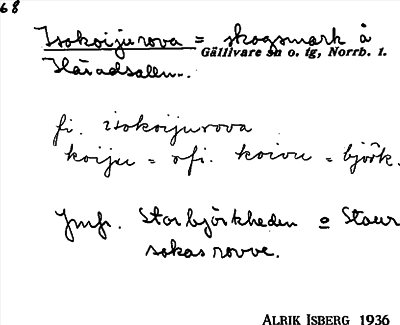 68
Isokoijurova = skogsmark å
Gällivare sn o. tg, Norrb. l.
Häradsallm.
fi. isokoijurova
koiju = ofi. koivu = björk.
Jmfr. Storbjörkheden o Staur
sokasrovve.
ALRIK ISBERG 1936